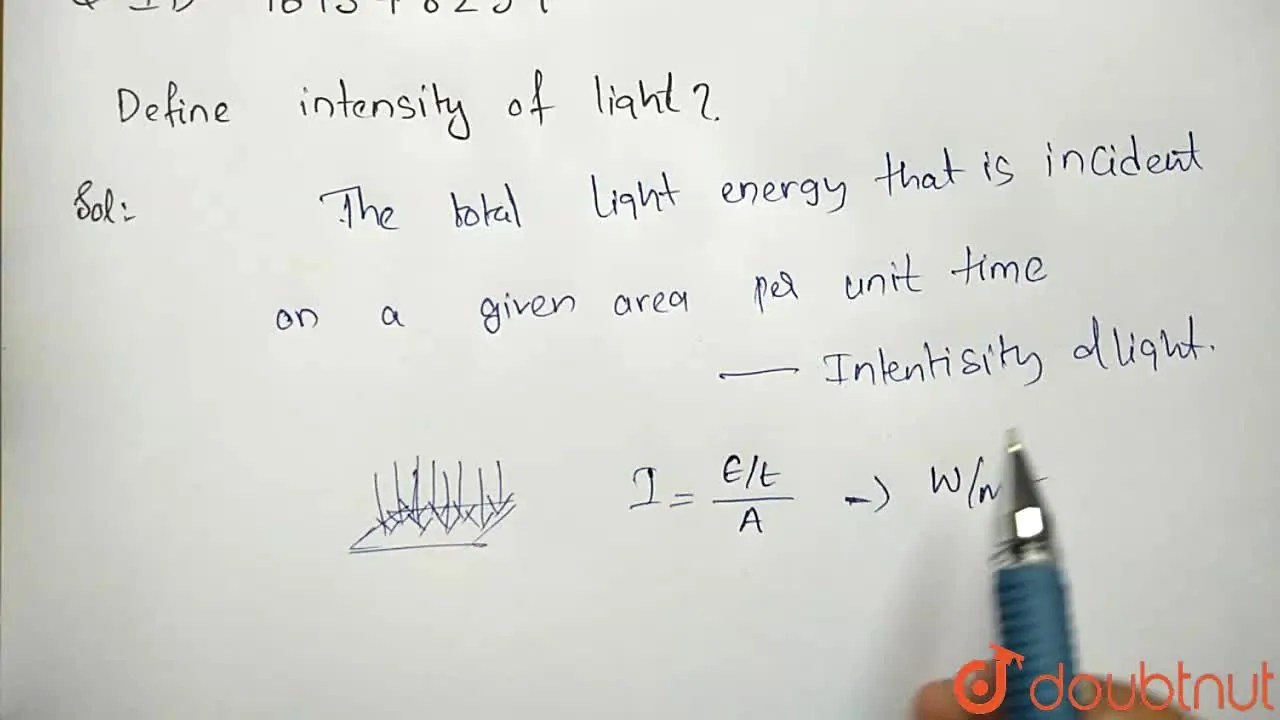 Define intensity of light?
Sol:
The total light energy that is incident
on a given area per unit time
— Intentisity of light.
I = E/t / A -> W/
doubtnut